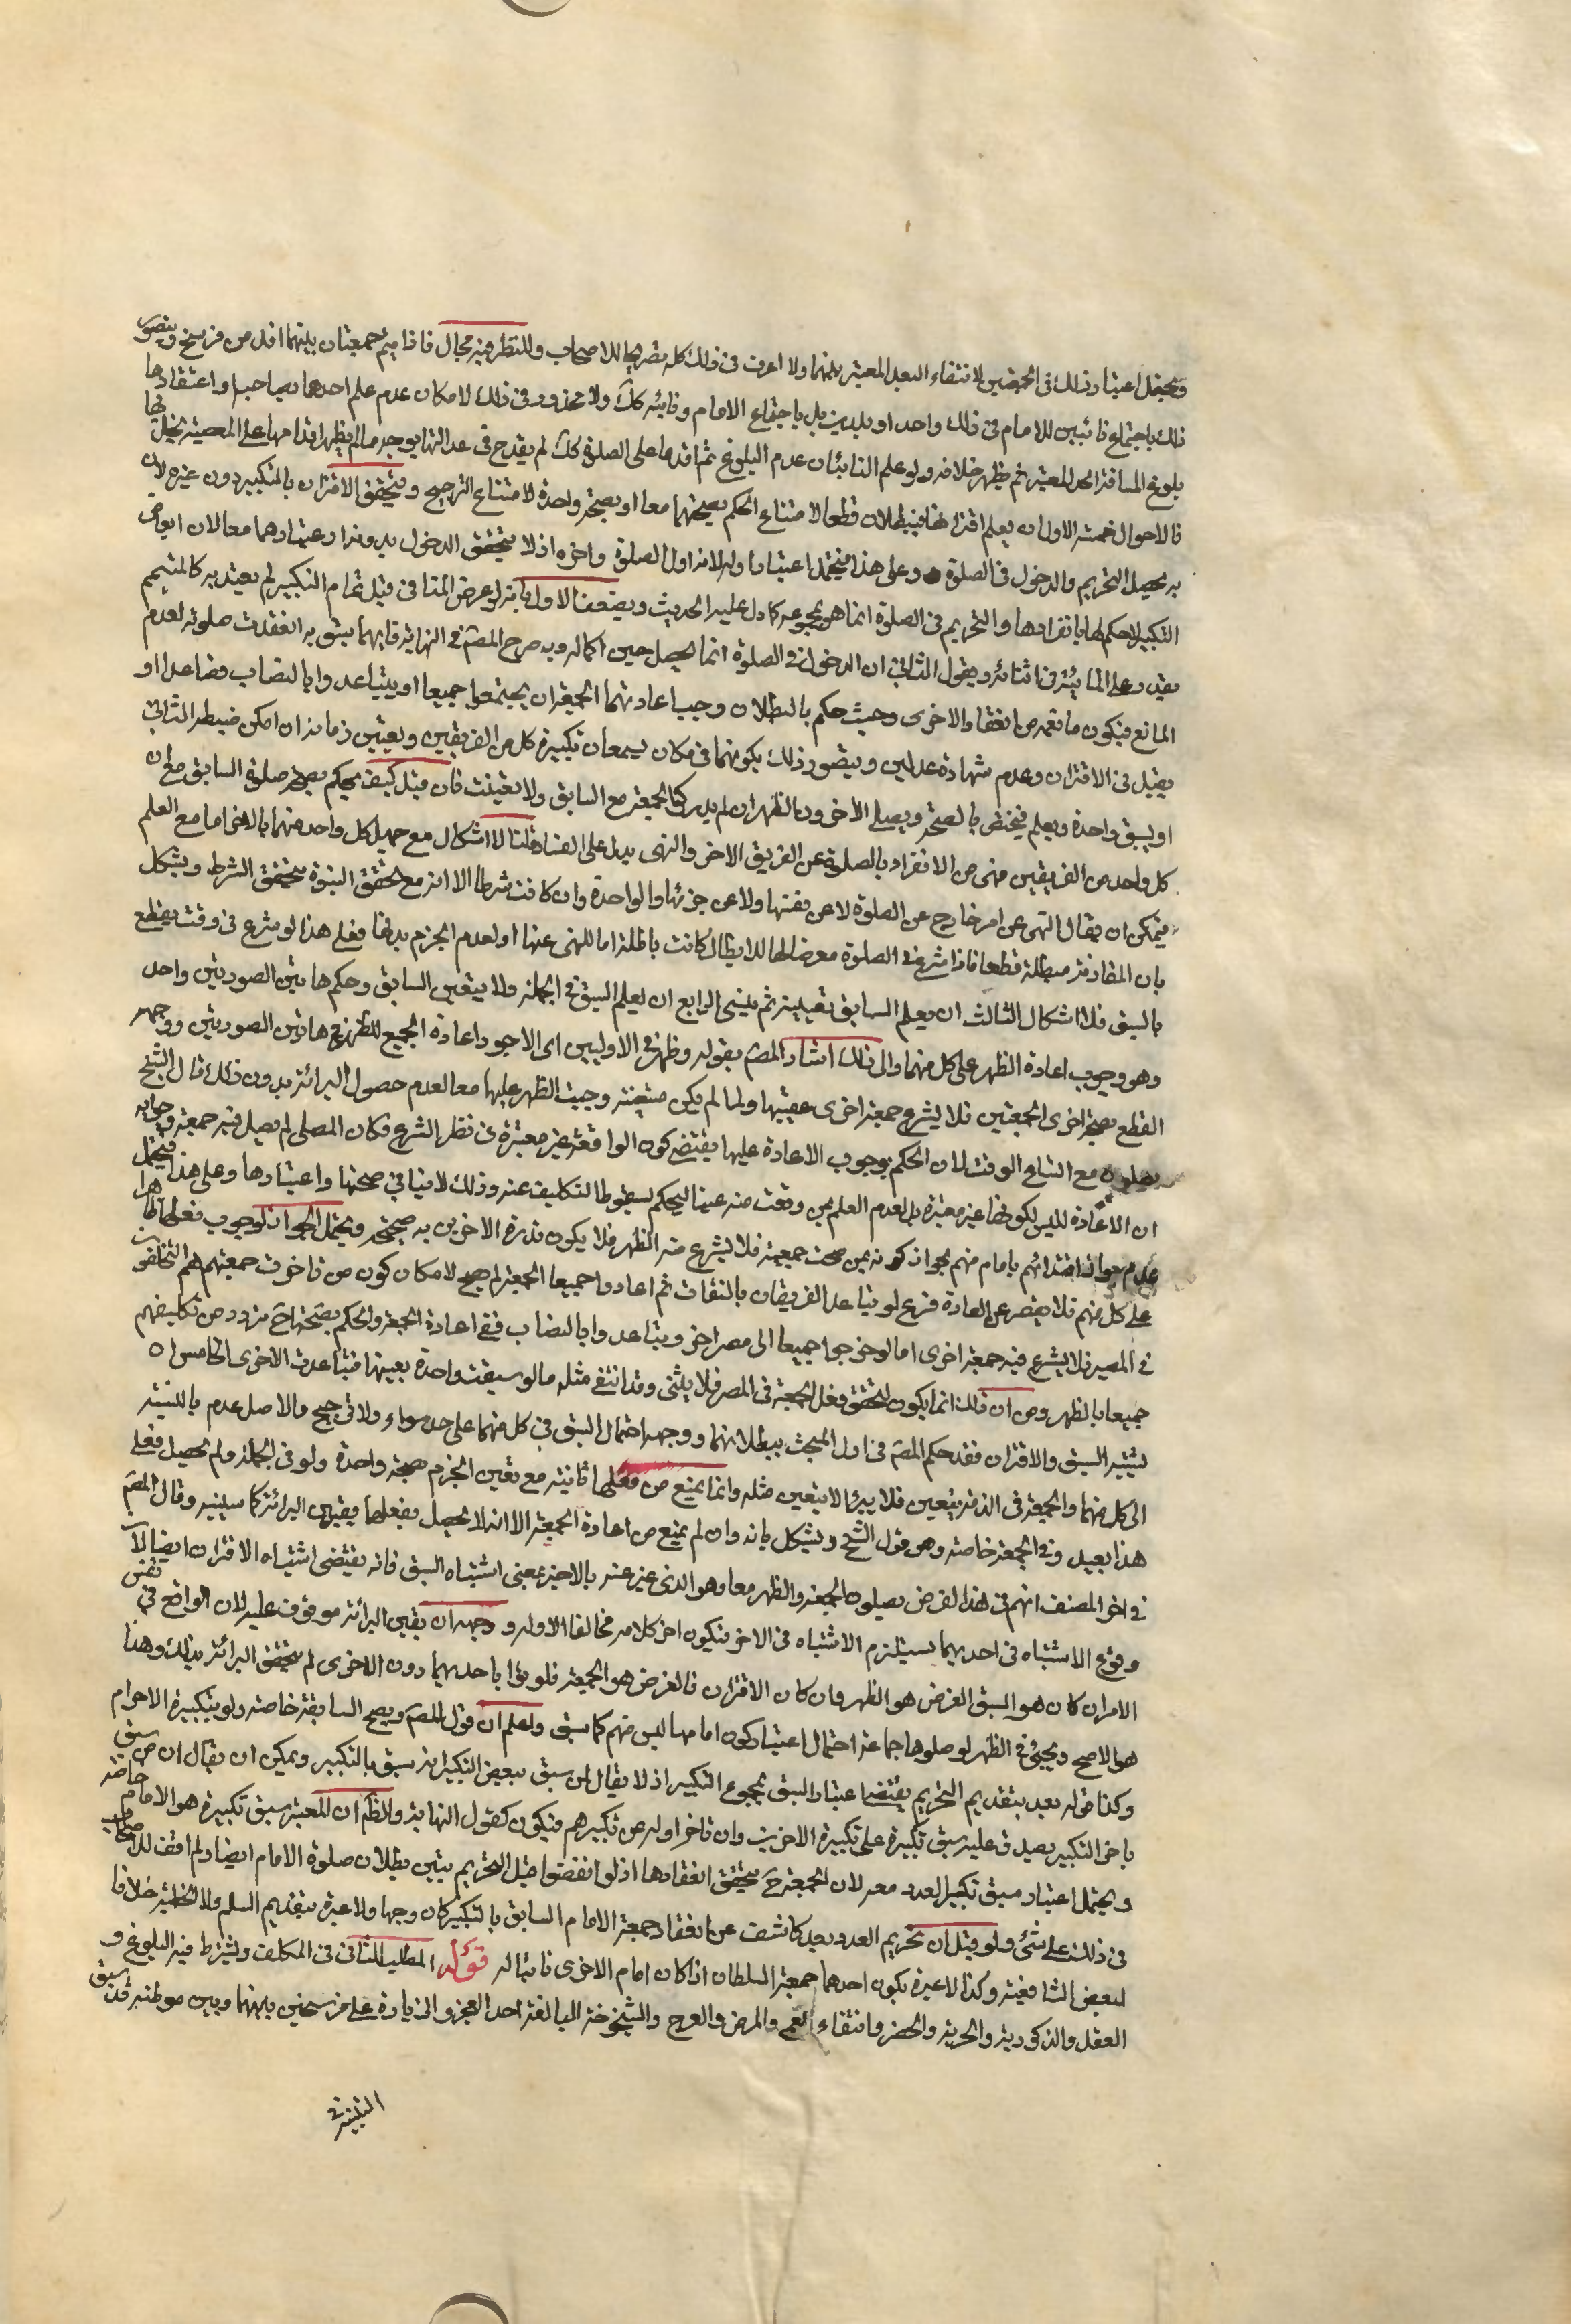 ويحتمل اعتبار ذلك في الجمعتين لانتفاء البعد المعتبر بينهما ولا اعرف في ذلك كله تصريحا للاصحاب وللنظر فيه مجال فاذا جمعتان بينهما اقل من فرسخ ويتصور
ذلك باجتماع نائبين للامام في ذلك واحد او بلدين بل باجتماع الامام ونائبه كك ولا محذور في ذلك لامكان عدم علم احدهما بصاحبه او اعتقادها
بلوغ المسافة الحد المعتبر ثم يظهر خلافه ولو علم النائبان عدم البلوغ ثم اقدما على الصلوة كك لم يقدح في عدالتهما بوجه ما لم يظهر اقدامهما على المعصية بها
فالاحوال خمسة الاول ان يعلم اقترانهما فيبطلان قطعا لامتناع الحكم بصحتهما معا او بصحة واحدة لامتناع الترجيح ويتحقق الاقتران بالتكبير دون غيره لان
به يحصل التحريم والدخول في الصلوة وعلى هذا فيحتمل اعتبار اوله لانه اول الصلوة واخره اذ لا يتحقق الدخول بدونه او اعتبارهما معا لان ابعاض
التكبير لا حكم لها بانفرادها والتحريم في الصلوة انما هو بمجموعه كما دل عليه الحديث ويضعف الاول بانه لو عرض المنافي قبل تمام التكبير لم يعتد به كالمتيمم
يقدر على المائية في اثنائه ويقول الثاني ان الدخول في الصلوة انما يحصل حين اكماله وبه صرح المصّ في النهاية فايهما سبق به انعقدت صلوته لعدم
المانع فيكون ما تقدم من انعقاد الاخرى وحيث حكم بالبطلان وجب اعادتهما الجمعة ان يجتمعوا جميعا او يتباعدوا بالنصاب فصاعدا او
يقبل في الاقتران وعدمه شهادة عدلين ويتصور ذلك بكونهما في مكان يسمعان تكبيرة كل من الفريقين ويعين زمانه ان امكن ضبطه الثاني
او يسبق واحدة ويعلم فيختص بالصحة ويصلي الاخرون الظهر ان لم يدركوا الجمعة مع السابق ولا تعينت فان قيل كيف يحكم بصحة صلوة السابق مع ان
كل واحد من الفريقين منهى عن الانفراد بالصلوة عن الفريق الاخر والنهى يدل على الفساد قلنا لا اشكال مع جهل كل واحد منهما بالاخر اما مع العلم
فيمكن ان يقال النهى عن امر خارج عن الصلوة لا عن نفسها ولا عن جزئها والواحدة وان كانت شرطا الا انه مع تحقق البينونة يتحقق الشرط ويشكل
بان المقارنة مبطلة قطعا فاذا شرع في الصلوة معرضا لها للابطال كانت باطلة اما للنهى عنها او لعدم الجزم بنيتها فعلى هذا لو شرع في وقت يقطع
بالسبق فلا اشكال الثالث ان يعلم السابق بعينه ثم ينسى الرابع ان يعلم السبق في الجملة ولا يتعين السابق وحكمهما بين الصورتين واحد
وهو وجوب اعادة الظهر على كل منهما والى ذلك اشار المصّ بقوله وظهر في الاوليين اى الاجود اعادة الجميع للظهر في هاتين الصورتين ووجهه
القطع بصحة احدى الجمعتين فلا يشرع جمعة اخرى عقيبها ولما لم يكن متعينة وجبت الظهر عليهما معا لعدم حصول البرائة بدون ذلك قال الشيخ
يصلون مع اتساع الوقت لان الحكم بوجوب الاعادة عليهما يقتضي كون الواقعة غير معتبرة في نظر الشرع فكان المصلى لم يصل فيه جمعة وجوابه
ان الاعادة لليس لكونها غير معتبرة بل لعدم العلم بمن وقعت منه عينا ليحكم بسقوط التكليف عنه وذلك لا ينافي صحتها واعتبارها وعلى هذا فيحتمل
عدم جواز اقتدائهم بامام منهم لجواز كونه ممن صحت جمعته فلا يشرع منه الظهر فلا يكون قدوة الاخرين به صحيحة ويحتمل الجواز لوجوب فعلها ظاهرا
على كل منهم فلا يقصر عن العادة فرع لو تباعد الفريقان بالنقات ثم اعادوا جميعا الجمعة لم يصح لامكان كون من تاخرت جمعتهم هم التخلفون
في المصر فلا يشرع فيه جمعة اخرى اما لو خرجوا جميعا الى مصر اخر وتباعدوا بالنصاب ففي اعادة الجمعة والحكم بصحتها ح تردد من تكليفهم
جميعا بالظهر ومن ان ذلك انما يكون لتحقق فعل الجمعة في المصر فلا يثنى وقد انتفى مثله ما لو سبقت واحدة بعينها فتباعدت الاخرى الخامس ان
يشتبه السبق والاقتران فقد حكم المصّ في اول المبحث ببطلانهما ووجهه احتمال السبق في كل منهما على حد سواء ولا ترجيح والاصل عدمه بالنسبة
الى كل منهما والجمعة في الذمة بيقين فلا يبرأ الا بيقين مثله وانما يمنع من فعلها ثانية مع تعين الجزم صحة واحدة ولو في الجملة ولم تحصل فعلى
هذا يعيدون الجمعة خاصة وهو قول الشيخ ويشكل بانه وان لم يمنع من اعادة الجمعة الا انه لا يحصل بفعلها يقين البرائة كما سنبينه وقال المصّ
في اخر المصنف انهم في هذا الفرض يصلون الجمعة والظهر معا وهو الذي عبر عنه بالاخير بمعنى اشتباه السبق فانه يقتضى اشتباه الاقتران ايضا لان
وقوع الاشتباه في احديهما يستلزم الاشتباه في الاخر فيكون اخر كلامه مخالفا لاوله ووجهه ان يقين البرائة موقوف عليه لان الواقع في نفس
الامر ان كان هو السبق الفرض هو الظهر وان كان الاقتران فالفرض هو الجمعة فلو برؤا باحديهما دون الاخرى لم يتحقق البرائة بذلك وهذا
هو الاصح ويجئ في الظهر لو صلوها جماعة احتمال اعتبار كون امامها ليس منهم كما سبق واعلم ان قول المصّ ويصح السابقة خاصة ولو بتكبيرة الاحرام
وكذا قوله بعد بتقديم التحريم يقتضى اعتبار السبق بمجموع التكبير اذ لا يقال لمن سبق ببعض التكبير انه سبق بالتكبير ويمكن ان يقال ان من سبق
باخر التكبير يصدق عليه سبق تكبيرة على تكبيرة الاخرين وان تاخر اوله عن تكبيرهم فيكون كقول النهاية والظم ان المعتبر سبق تكبيرة هو الامام خاصة
ويحتمل اعتبار سبق تكبير العدد معه لان الجمعة ح يتحقق انعقادها اذ لو انفضوا قبل التحريم يتبين بطلان صلوة الامام ايضا ولم اقف للاصحاب
في ذلك على شئ ولو قيل ان تحريم العدد بعد كاشف عن انعقاد جمعة الامام السابق بالتكبير كان وجها ولا عبرة بتقديم السلم ولا الخطبة خلافا
لبعض الشافعية وكذا لا عبرة بكون احدهما جمعة السلطان اذا كان امام الاخرى نائبا له قوله المطلب الثاني في المكلف ويشترط فيه البلوغ و
العقل والذكورية والحرية والحضر وانتفاء العمى والمرض والعرج والشيخوخة البالغة احد العجز والزيادة على فرسخين بينهما وبين موطنه قد سبق